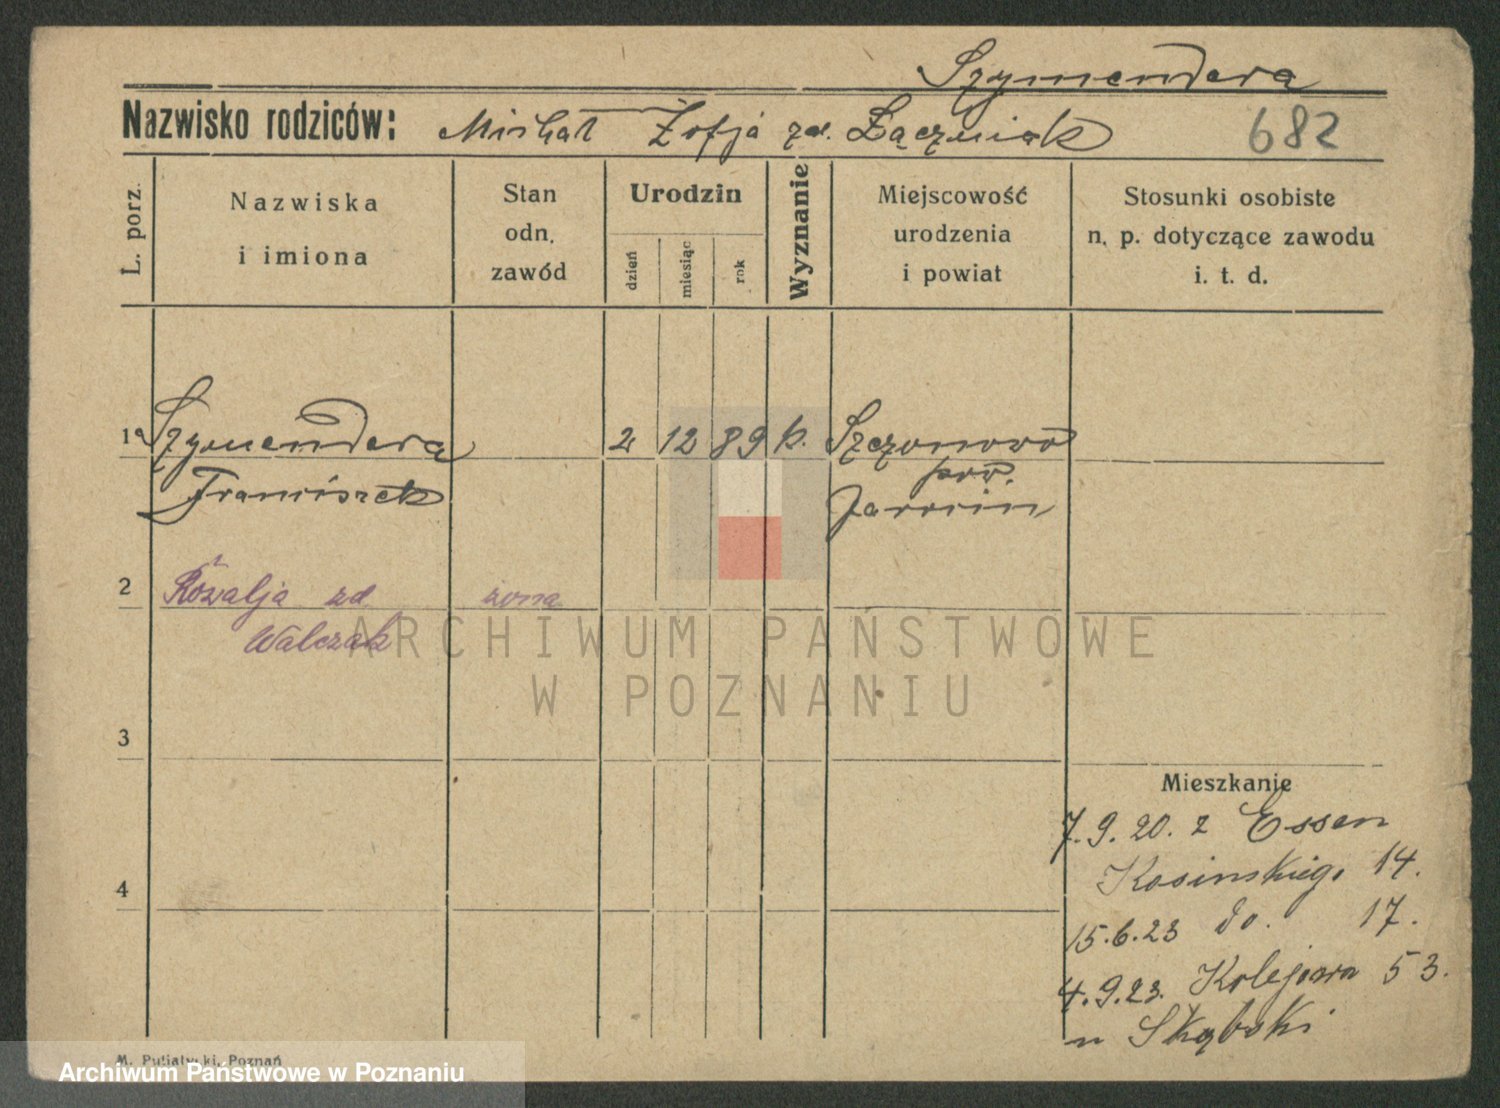 Szymendera
Nazwisko rodziców: Michał Zofja zd. Łączniak 682
L. porz.
Nazwiska
i imiona
Stan
odn.
zawód
Urodzin
dzień
miesiąc
rok
Wyznanie
Miejscowość
urodzenia
i powiat
Stosunki osobiste
n. p. dotyczące zawodu
i. t. d.
1 Szymendera 2 12 89 k. Szczonowo
Franciszek
pow.
Jarocin
2 Rozalja zd. żona
Walczak
3
4
Mieszkanie
7.9.20. z Essen
Kosinskiego 14.
15.6.23 do. 17.
4.9.23. Kolejowa 53.
u Skąbski
ARCHIWUM PAŃSTWOWE
W POZNANIU
M. Putiatycki, Poznań
Archiwum Państwowe w Poznaniu